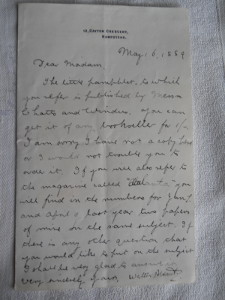 12, GAYTON CRESCENT,
HAMPSTEAD.
May 6, 1889
Dear Madam
The little pamphlet to which
you refer is published by Messrs
Chatto and Windus. You can
get it of any bookseller for 1/-
I am sorry I have not a copy here
or I would not trouble you to
order it. If you will also refer to
the magazine called you
will find in the numbers for Jan
and April last year two papers
of mine on the same subject. If
there is any other question that
you would like to put on the subject
I shall be very glad to answer it
Very sincerely yours, Walter Besant